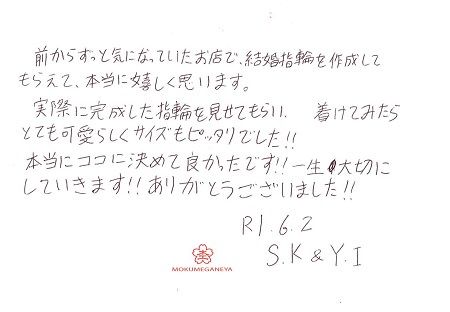 前からずっと気になっていたお店で、結婚指輪を作成して
もらえて、本当に嬉しく思います。
実際に完成した指輪を見せてもらい、着けてみたら
とても可愛らしくサイズもピッタリでした!!
本当にココに決めて良かったです!!一生大切に
していきます!!ありがとうございました!!
R1.6.2
S.K & Y.I
MOKUMEGANEYA